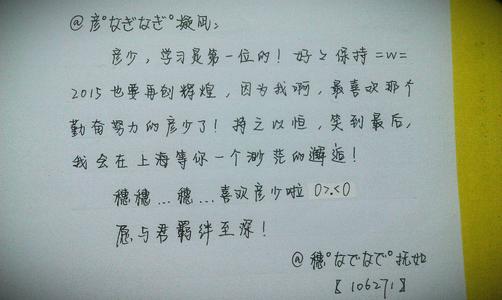 @彦°なぎなぎ°凝风:
彦少,学习是第一位的!好好保持=w=
2015也要再创辉煌,因为我啊,最喜欢那个
勤奋努力的彦少了!持之以恒,笑到最后,
我会在上海等你一个渺茫的邂逅!
穗穗...穗...喜欢彦少啦 0>.<0
愿与君羁绊至深!
@穗°なでなで°抚如
〖106271〗